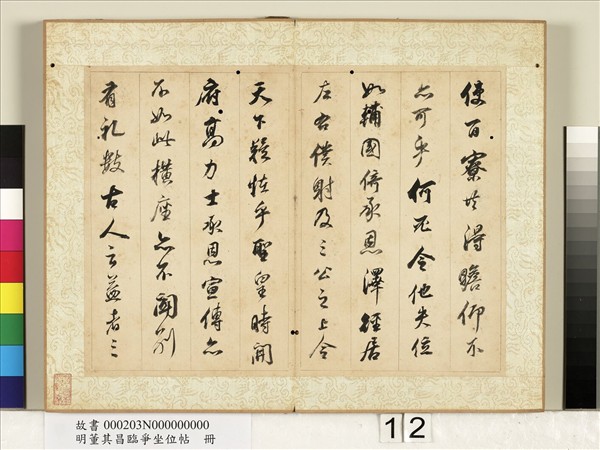 使百寮共得瞻仰不
亦可乎何必令他失位
如輔國倚承恩澤徑居
左右僕射及三公之上令
天下疑怪乎聖皇時開
府高力士承恩宣傳亦
只如此橫座亦不聞別
有礼數古人云益者三
故書 000203N000000000
明董其昌臨爭坐位帖 冊
12